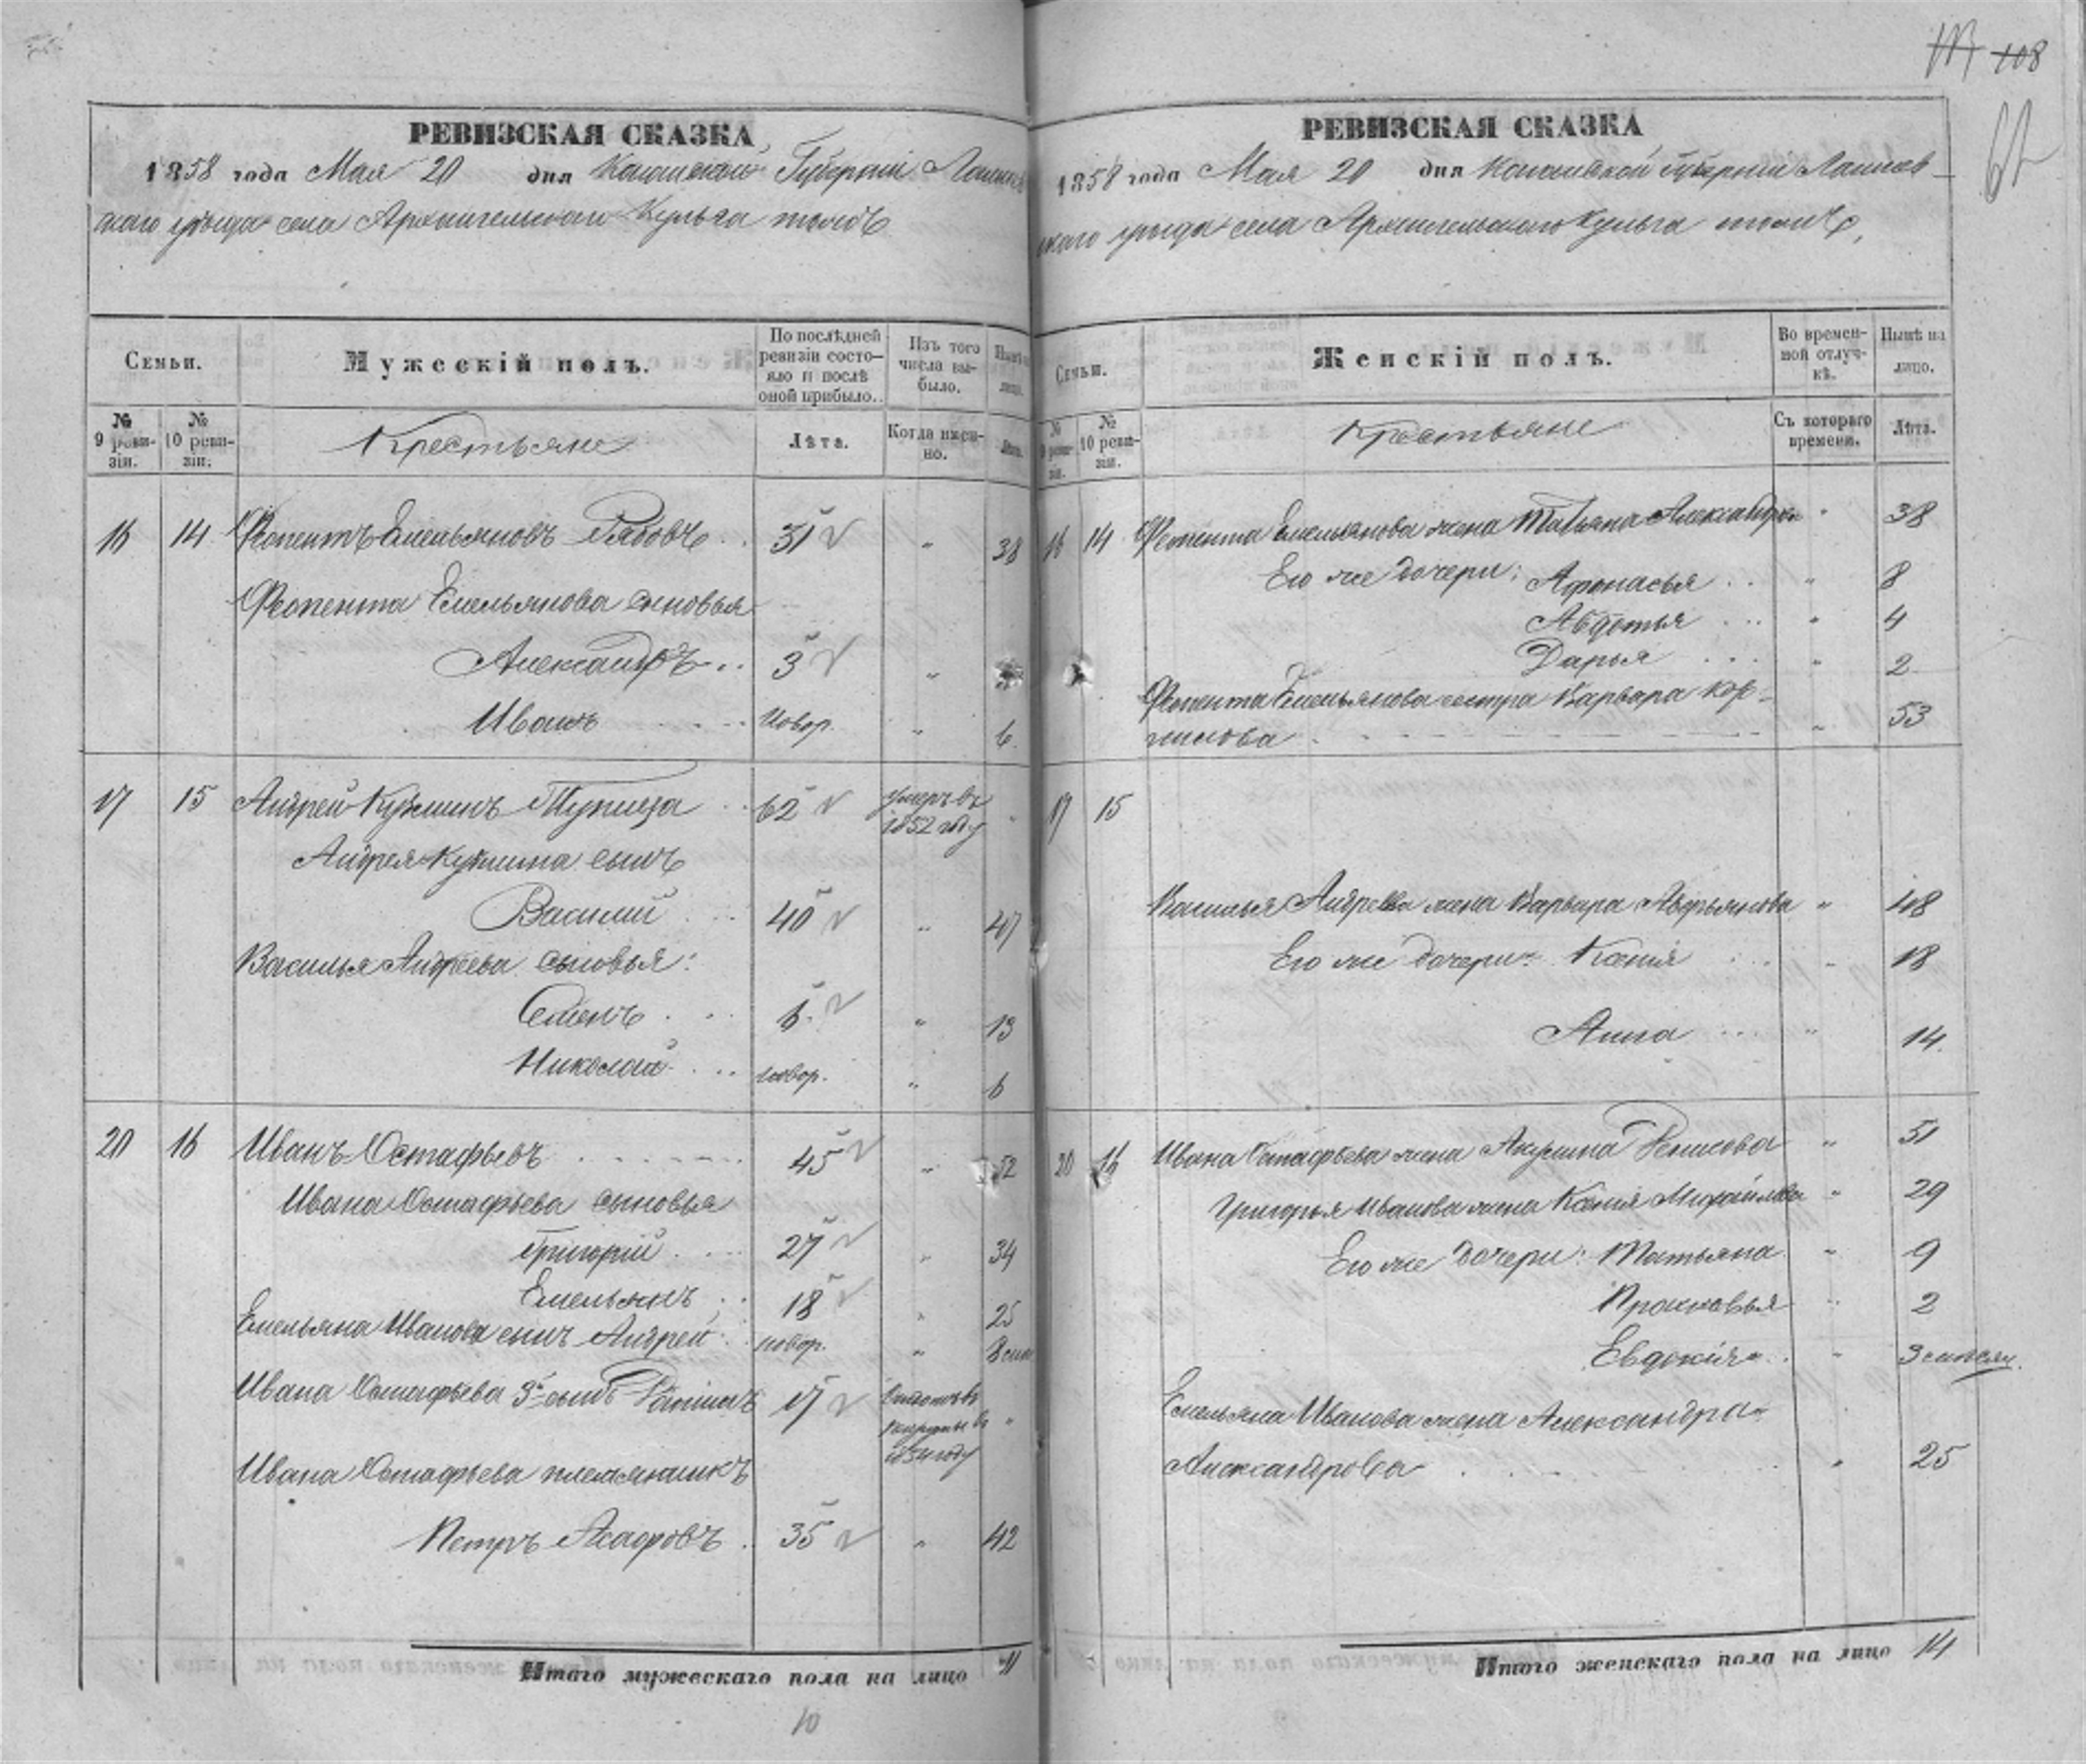 108
РЕВИЗСКАЯ СКАЗКА
1858 года Мая 20 дня Казанской Губерніи Лаишев
скаго уѣзда села Архангельскаго Кульга тожъ
Семьи.
Мужескій полъ.
По послѣдней ревизіи состо-
яло и послѣ
оной прибыло.
Изъ того
числа вы-
было.
Нынѣ на
лицо.
№
9 реви-
зіи.
№
10 реви-
зіи.
Крестьяне
Лѣта.
Когда имен-
но.
Лѣта.
16 14 Феопентъ Емельяновъ Рябовъ 31 " 38
Феопента Емельянова сыновья
Александръ 3 "
Иванъ Новор. " 6
17 15 Андрей Кузминъ 62 умеръ въ
1852 году "
Андрея Кузмина сынъ
Василий 40 " 47
Василья Андреева сыновья:
Семенъ 6 " 13
Николай новор. " 6
20 16 Иванъ Остафьевъ 45 " 52
Ивана Остафьева сыновья
Григорій 27 " 34
Емельянъ 18 " 25
Емельяна Иванова сынъ Андрей новор. "
Ивана Остафьева 3й сынъ Даніилъ 17
рекруты въ
1854 году "
Ивана Остафьева племянникъ
Петръ Асафовъ 35 " 42
Итаго мужескаго пола на лицо 11
10
РЕВИЗСКАЯ СКАЗКА
1858 года Мая 20 дня Казанской Губерніи Лаишев-
скаго уѣзда села Архангельскаго Кульга тожъ,
Семьи.
Женскій полъ.
Во времен-
ной отлуч-
кѣ.
Нынѣ на
лицо.
№
9 реви-
зіи.
№
10 реви-
зіи.
Крестьяне
Съ котораго
времени.
Лѣта.
16 14 Феопента Емельянова жена Татьяна Александрова " 38
Его же дочери: Афонасья " 8
Авдотья " 4
Дарья " 2
Феопента Емельянова сестра Варвара Кор-
нилова " 53
17 15
Василья Андреева жена Варвара Аверьянова " 48
Его же дочери: Ксенія " 18
Анна " 14
20 16 Ивана Остафьева жена Акулина Денисова " 51
Григорья Иванова жена Ксенія Михайлова " 29
Его же дочери: Татьяна " 9
Прасковья " 2
Евдокія "
Емельяна Иванова жена Александра
Александрова " 25
Итого женскаго пола на лицо 14